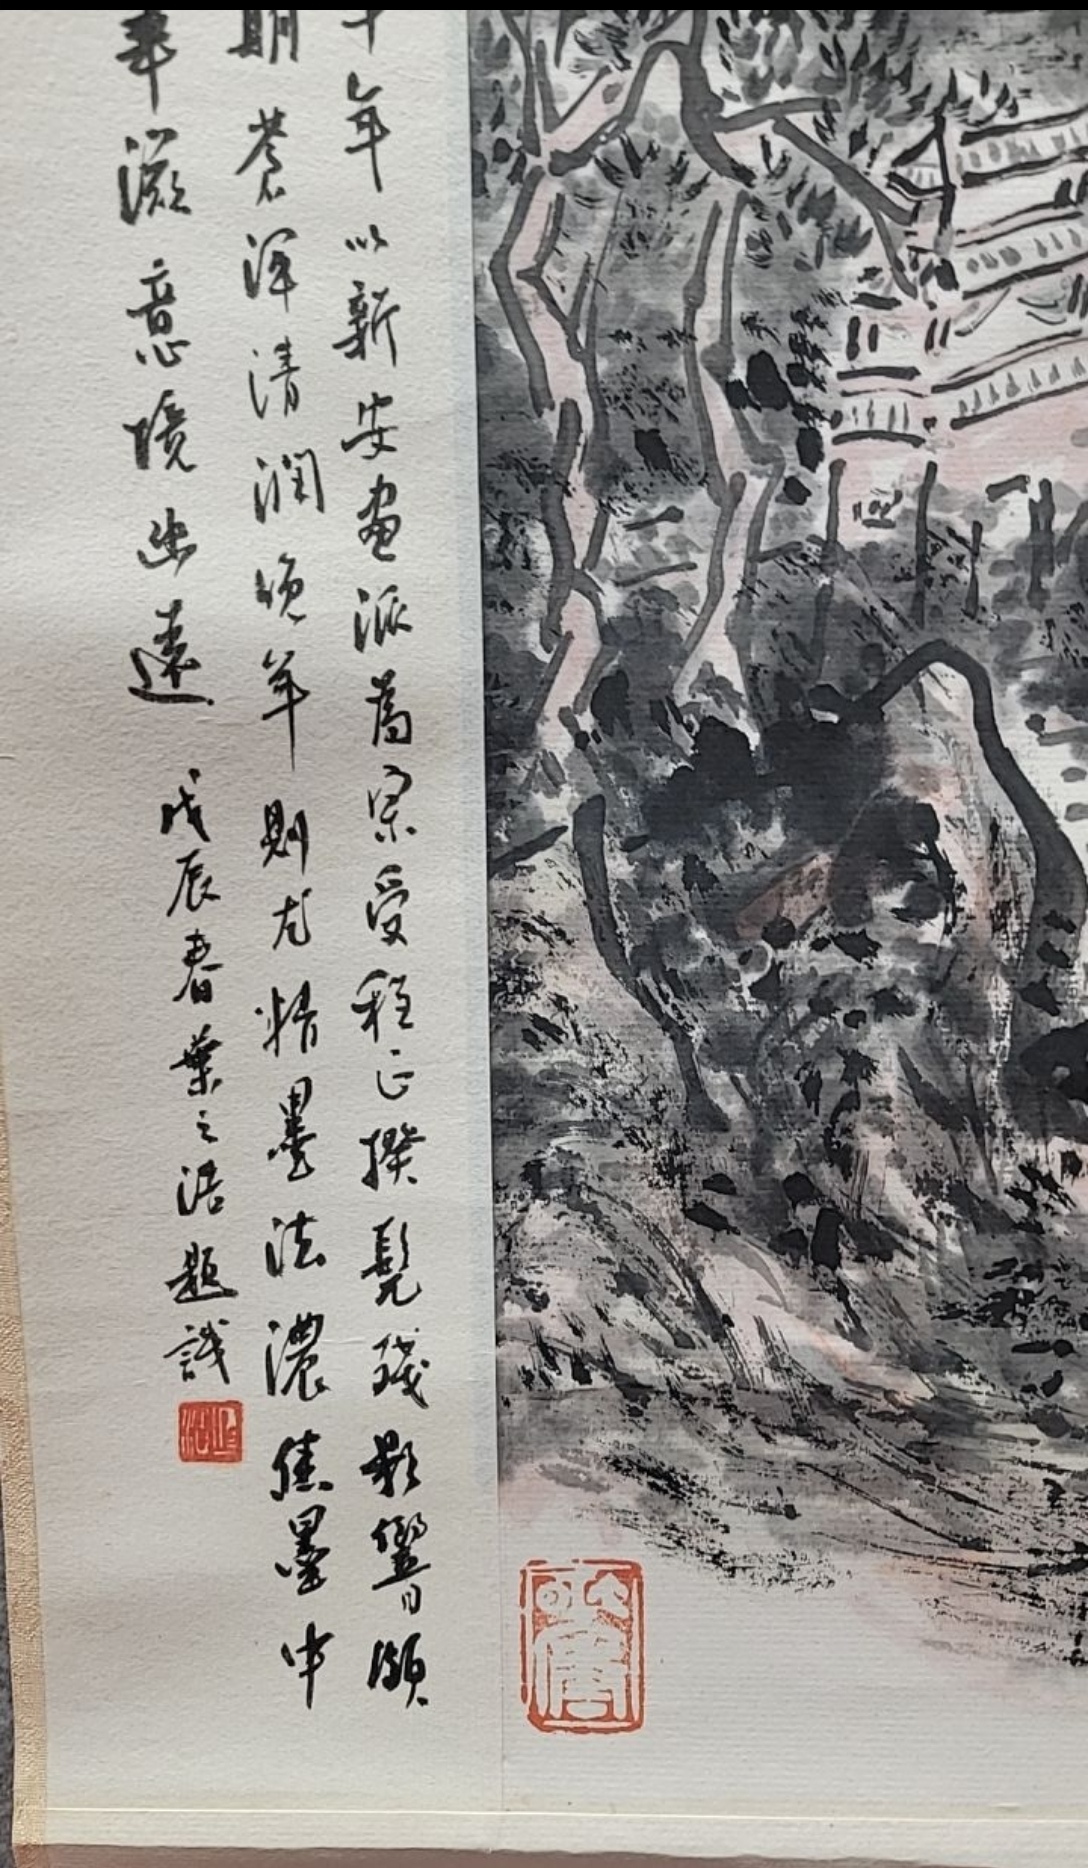 十年以新安畫派為宗受程正揆髡殘影響頗
期蒼渾清潤晚年則尤精墨法濃焦墨中
華滋意境幽遠
戊辰春葉之浩題識